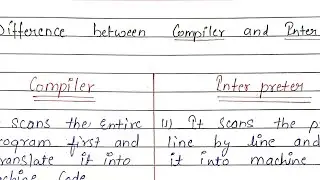 Difference between Compiler and Inter
Compiler
Inter preter
scans the Entire
rogram first and
ranslate it into
chine Code
(1) It scans the p
line by line and
it into machine